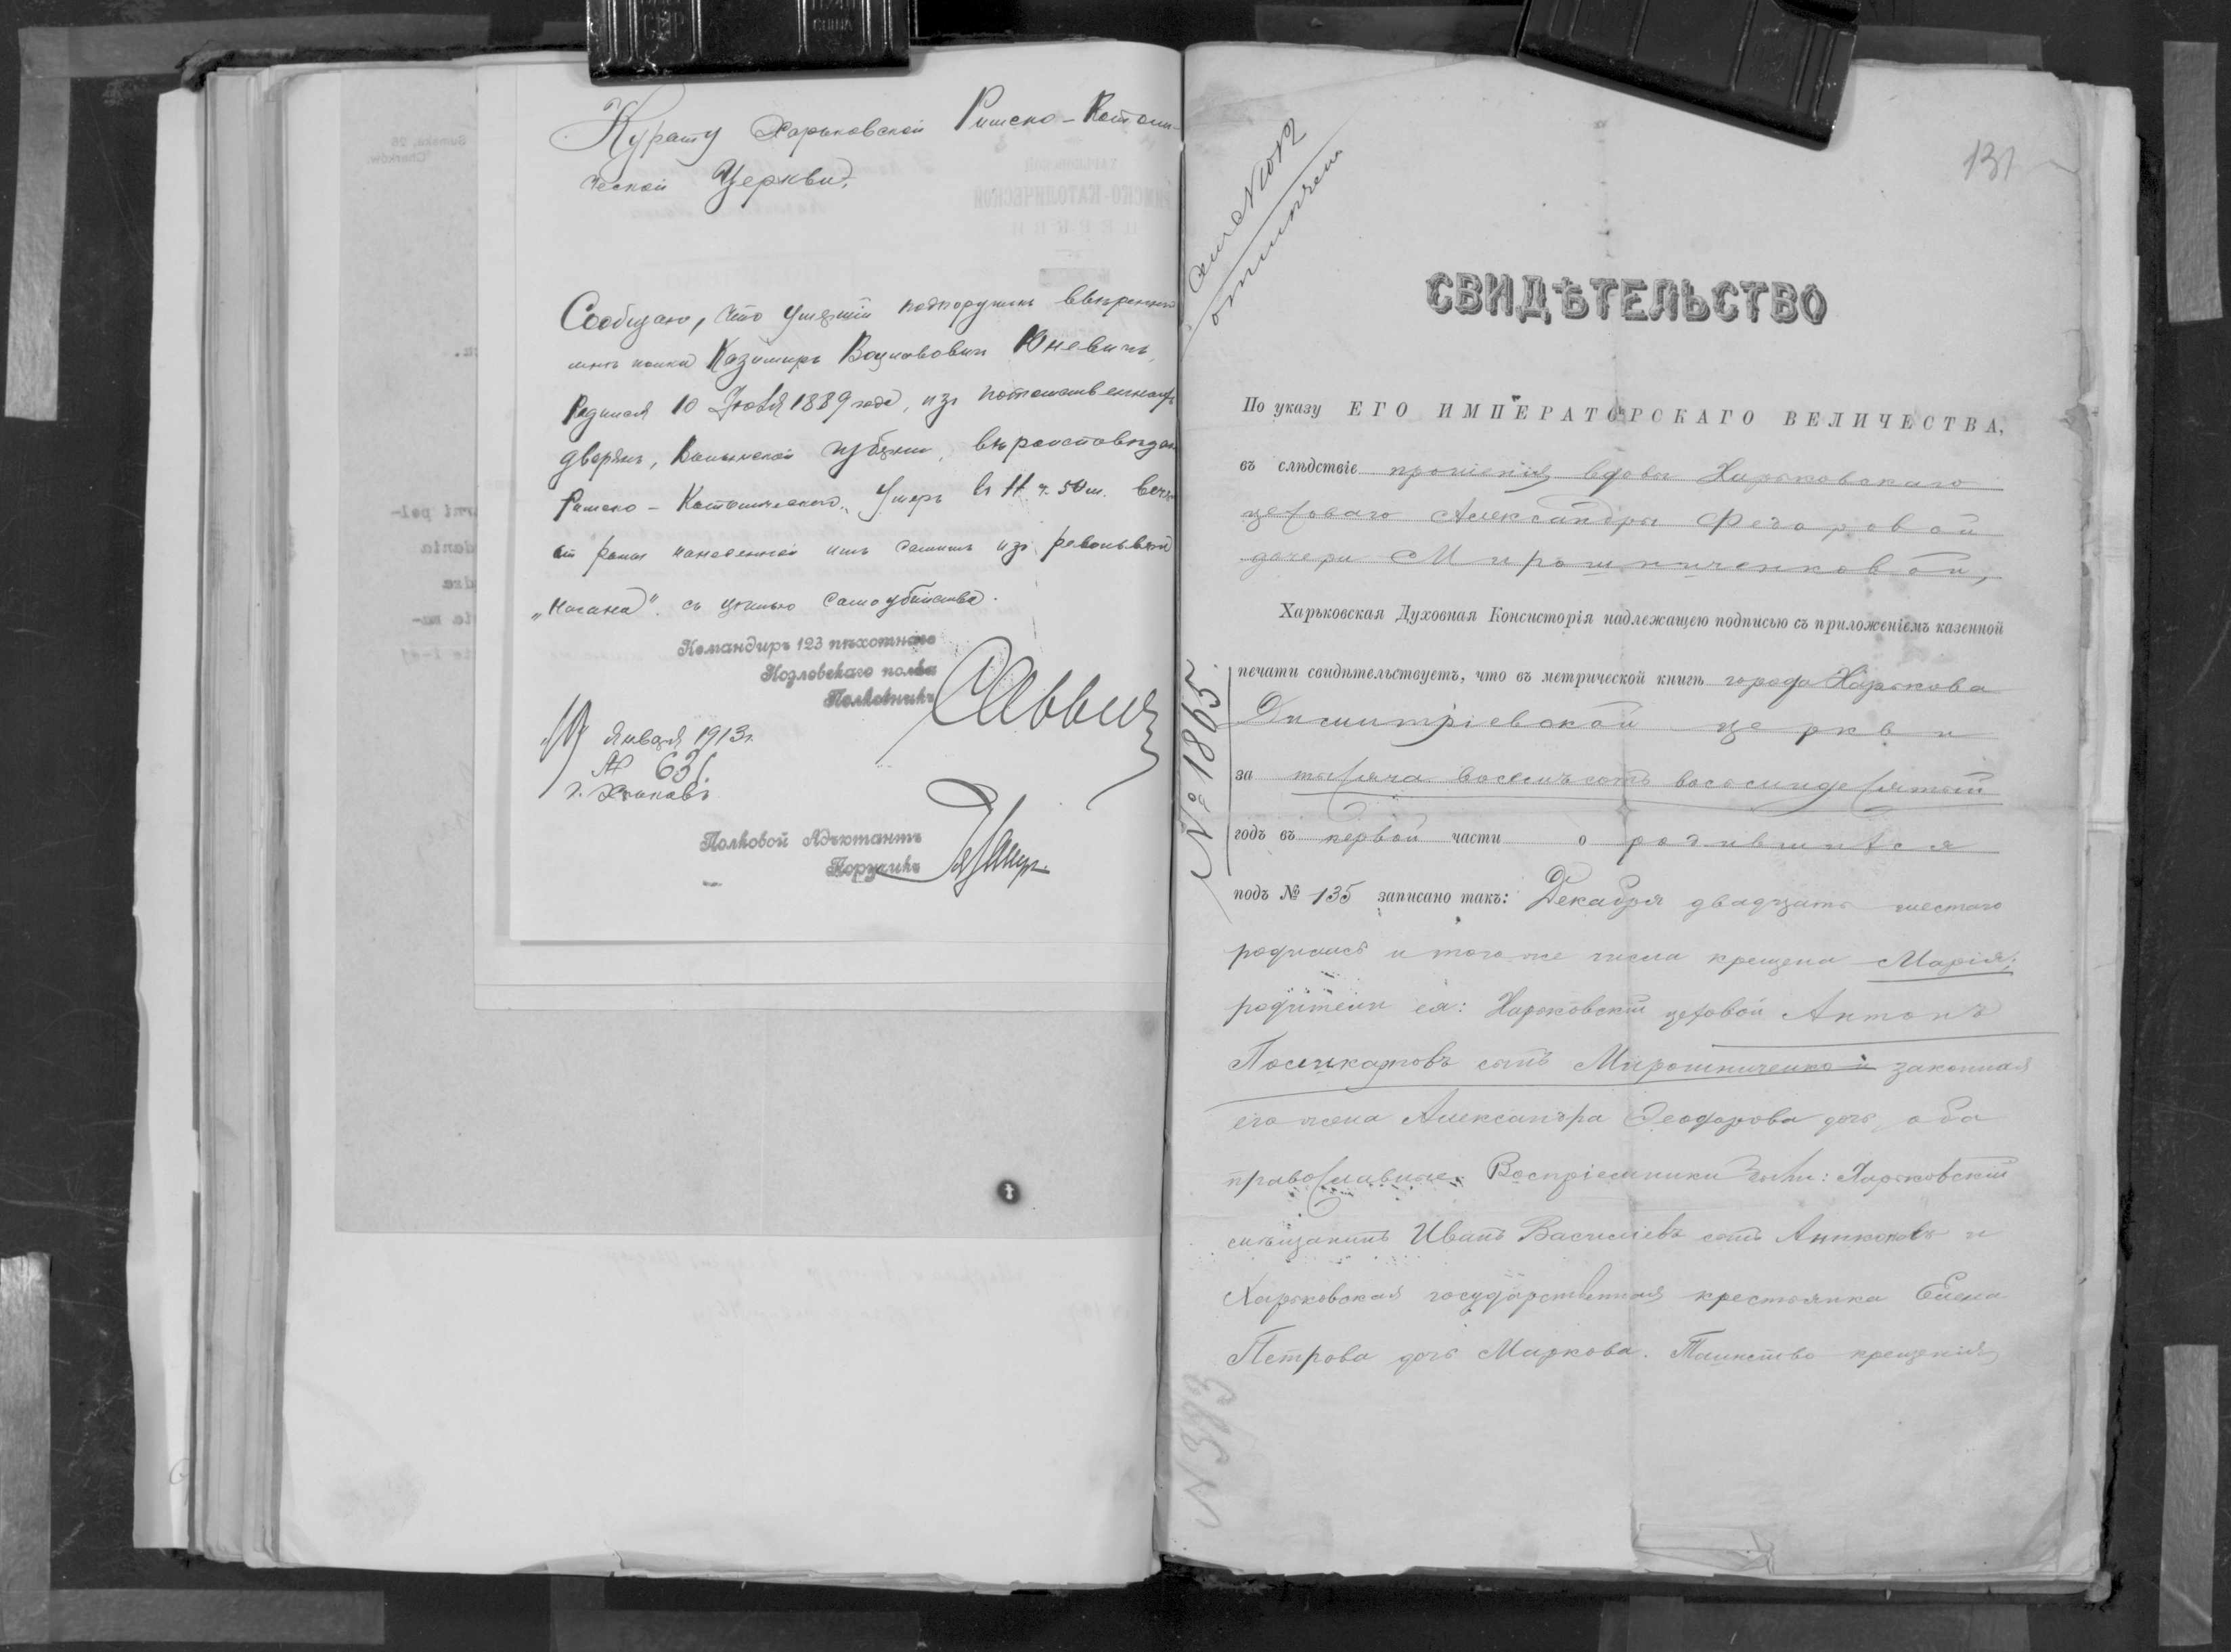 Курату Харьковской Римско-Католи-
ческой Церкви.
Сообщаю, что умерший подпоручикъ ввѣреннаго
мнѣ полка Казимиръ Вацлавовичъ Юневичъ,
родился 10 Іюля 1889 года, изъ потомственныхъ
дворянъ, губерніи, вѣроисповѣдан
Римско-Католическаго. Умеръ въ 11 ч. 50 м. вечера
от раны нанесенной имъ самимъ изъ револьвера
„Нагана" съ цѣлью самоубійства.
Командиръ 123 пѣхотнаго
Козловскаго полка
Полковникъ
Января 1913 г.
№ 631.
г. Харьковъ
Полковой Адъютантъ
Поручикъ
131
СВИДѢТЕЛЬСТВО
По указу ЕГО ИМПЕРАТОРСКАГО ВЕЛИЧЕСТВА,
въ слѣдствіе прошенія вдовы Харьковскаго
цеховаго Александры Федоровой
дочери Мирошниченковой,
Харьковская Духовная Консисторія надлежащею подписью съ приложеніемъ казенной
печати свидѣтельствуетъ, что въ метрической книгѣ города Харькова
Димитріевской церкви
за тысяча восемьсотъ восьмидесятый
годъ въ первой части о родившихся
подъ № 135 записано такъ: Декабря двадцать шестаго
родилась и того же числа крещена Марія;
родители ея: Харьковскій цеховой Антонъ
Поликарповъ сынъ Мирошниченко и законная
его жена Александра Феодорова дочь, оба
православные. Воспріемники были: Харьковскій
мѣщанинъ Иванъ Васильевъ сынъ и
Харьковская государственная крестьянка Елена
Петрова дочь Маркова. Таинство крещенія
№ 1865.
N 383